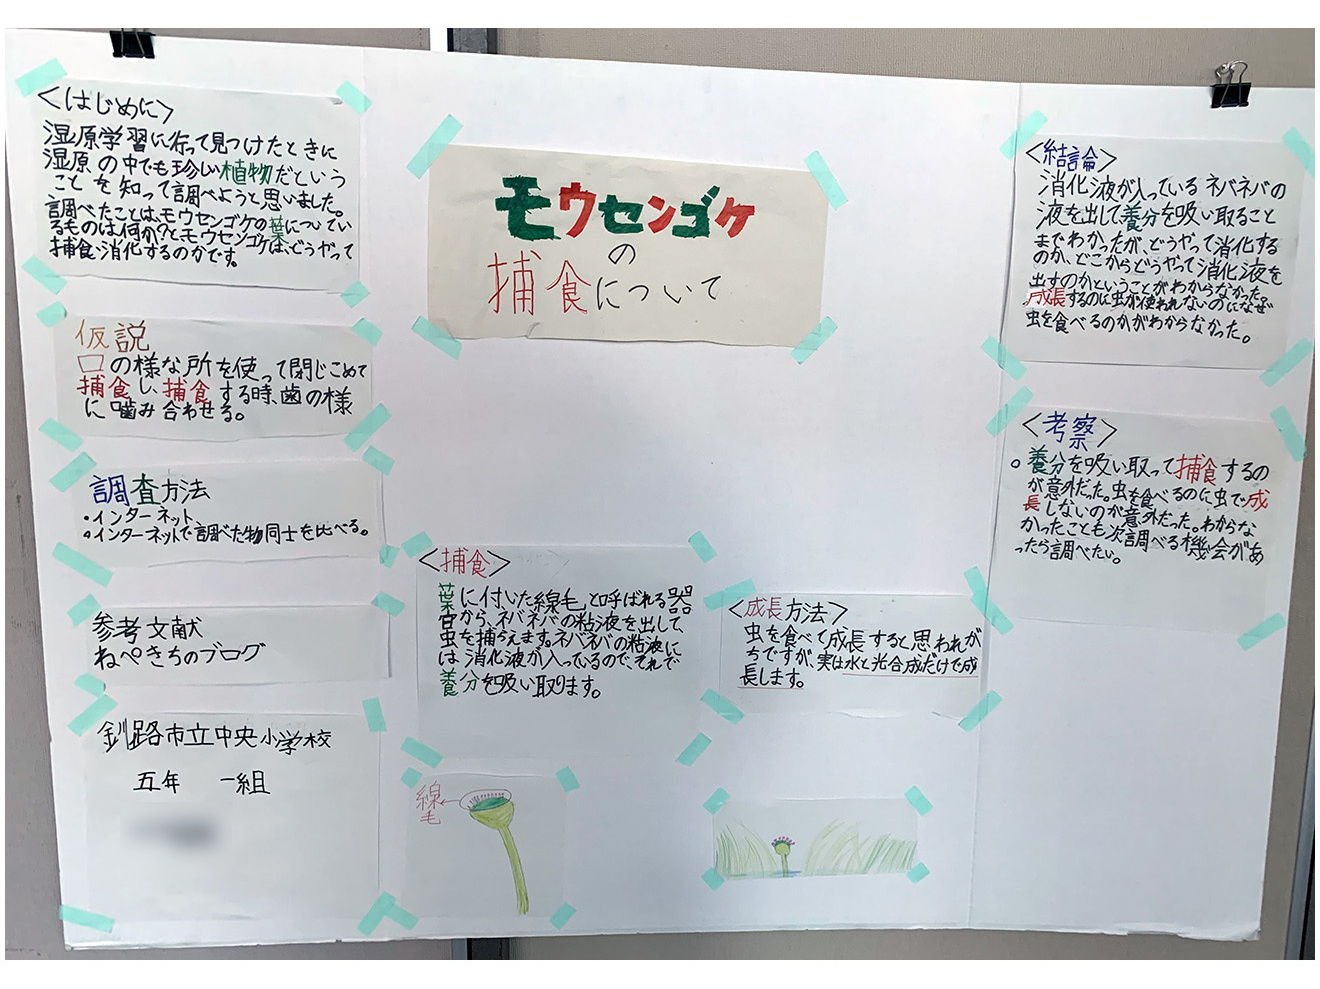 <はじめに>
湿原学習に行って見つけたときに
湿原の中でも珍しい植物だという
ことを知って調べようと思いました。
調べたことは、モウセンゴケの葉についてい
るものは何か?と、モウセンゴケは、どうやって
捕食・消化するのかです。
仮説
口の様な所を使って閉じこめて
捕食し、捕食する時、歯の様
に噛み合わせる。
調査方法
・インターネット
・インターネットで調べた物同士を比べる。
参考文献
ねぺきちのブログ
釧路市立中央小学校
五年 一組
モウセンゴケ
の
捕食について
<捕食>
葉に付いた「線毛」と呼ばれる器
官から、ネバネバの粘液を出して、
虫を捕らえます。ネバネバの粘液に
は消化液が入っているので、それで
養分を吸い取ります。
線毛
<成長方法>
虫を食べて成長すると思われが
ちですが、実は水と光合成だけで成
長します。
<結論>
消化液が入っているネバネバの
液を出して養分を吸い取ること
までわかったが、どうやって消化する
のか、どこからどうやって消化液を
出すのかということがわからなかった。
成長するのに虫が使われないのになぜ
虫を食べるのかがわからなかった。
<考察>
。養分を吸い取って捕食するの
が意外だった。虫を食べるのに虫で成
長しないのが意外だった。わからな
かったことも次調べる機会があ
ったら調べたい。